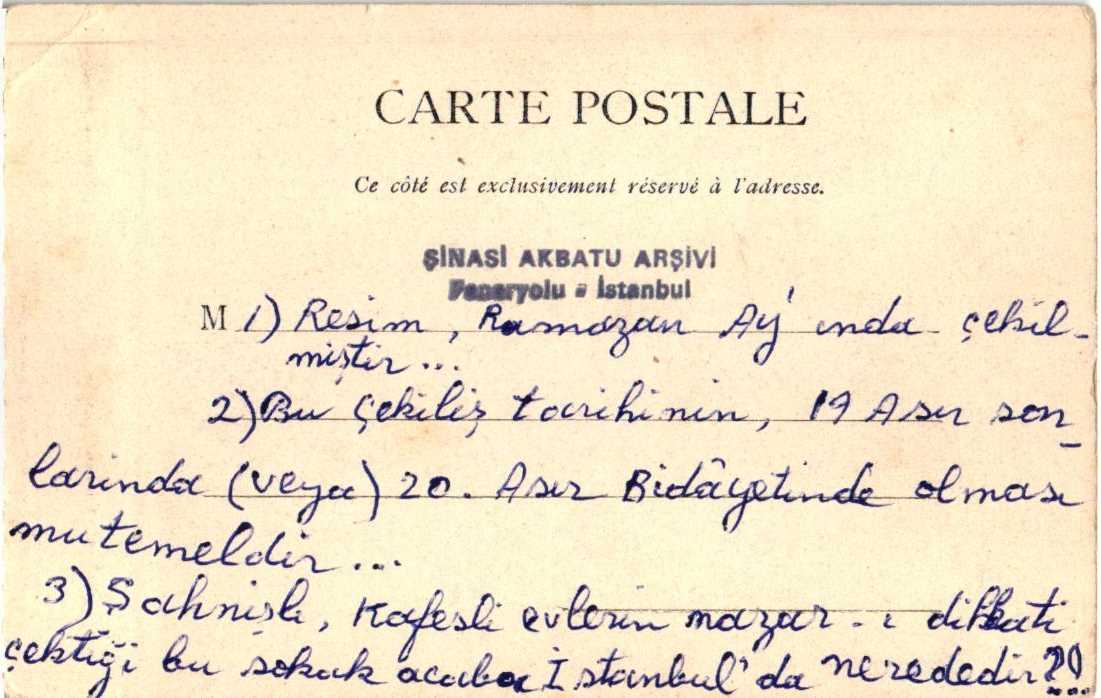 CARTE POSTALE
Ce côté est exclusivement réservé à l'adresse.
ŞİNASİ AKBATU ARŞİVİ
Feneryolu - İstanbul
M 1) Resim, Ramazan Ay'ında çekil-
miştir...
2) Bu çekiliş tarihinin, 19 Asır son-
larında (veya) 20. Asır Bidâyetinde olması
mutemeldir...
3) Şahnişli, Kafesli evlerin nazar-ı dikkati
çektiği bu sokak acaba İstanbul'da nerededir?!